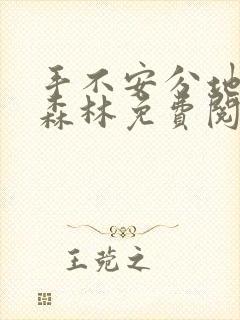 手不安分地
森林免费阅
王菀之